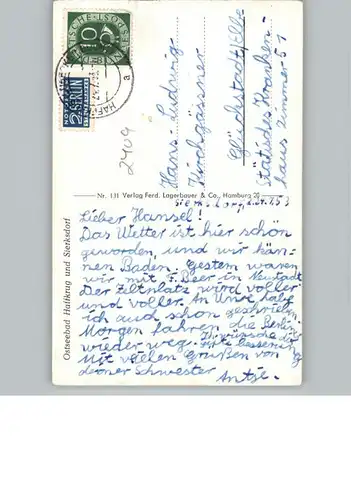 DEUTSCHE BUNDESPOST
10
NOTOPFER
2 BERLIN
STEUERMARKE
2409
Hans Ludwig
Kirchgässner
Glückstadt/Elbe
städtisches Kranken-
haus Zimmer 51
Nr. 131 Verlag Ferd. Lagerbauer & Co., Hamburg 20
Ostseebad Haffkrug und Sierksdorf
Sierksdorf, d. 24.7.53
Lieber Hansel!
Das Wetter ist hier schön
geworden, und wir kön-
nen Baden. Gestern waren
wir mit F. Beer in Neustadt
Der Zeltplatz wird voller
und voller. An Uwe habe
ich auch schon geschrieben.
Morgen fahren die Berliner
wieder weg. Ich wünsche dir
gute besserung
Mit vielen Grüßen von
deiner Schwester
Antje.